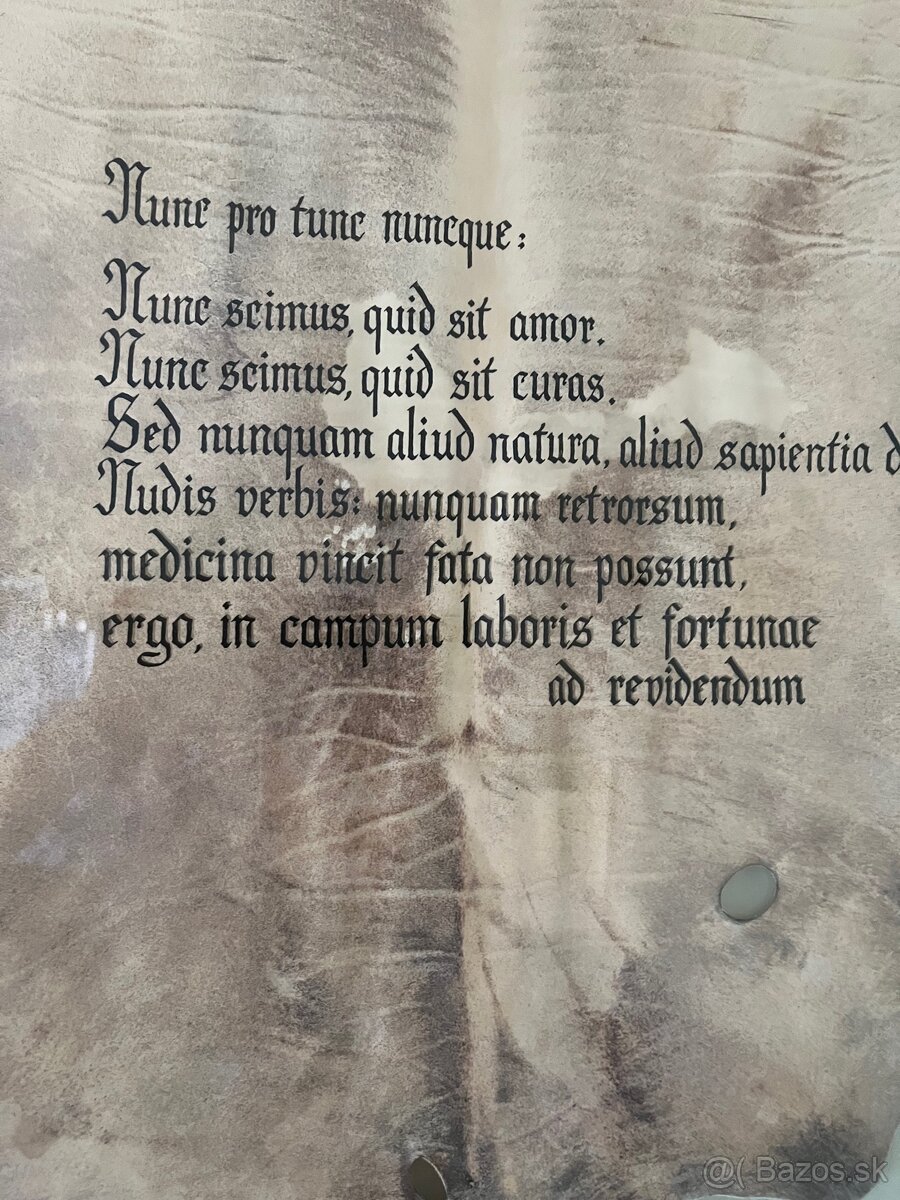 Nunc pro tunc nuncque:
Nunc scimus, quid sit amor.
Nunc scimus, quid sit curas.
Sed nunquam aliud natura, aliud sapientia
Nudis verbis: nunquam retrorsum,
medicina vincit fata non possunt,
ergo, in campum laboris et fortunae
ad revidendum
@( Bazos.sk